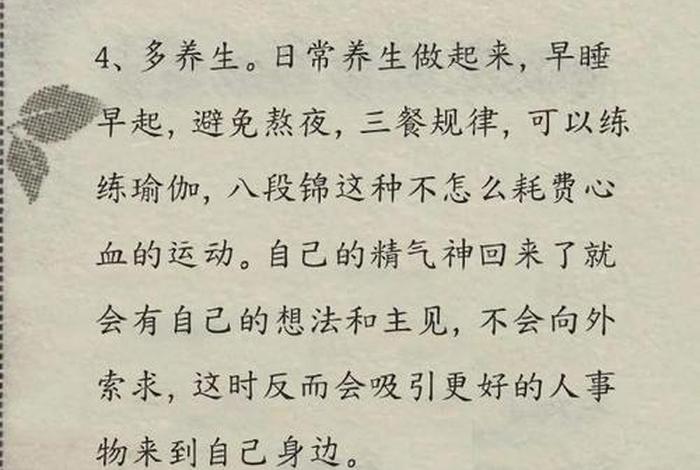 4、多养生。日常养生做起来，早睡
早起，避免熬夜，三餐规律，可以练
练瑜伽，八段锦这种不怎么耗费心
血的运动。自己的精气神回来了就
会有自己的想法和主见，不会向外
索求，这时反而会吸引更好的人事
物来到自己身边。